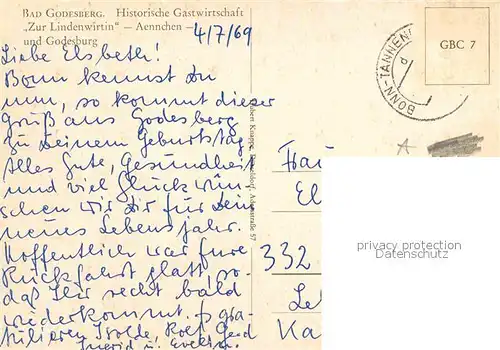 BAD GODESBERG. Historische Gastwirtschaft
„Zur Lindenwirtin" — Aennchen —
und Godesburg
4/7/69
GBC 7
BONN-TANNEN
d
Liebe Elsbeth!
Bonn kennst Du
nun, so kommt dieser
Gruß aus Godesberg
zu Deinem Geburtstag.
Alles Gute, Gesundheit
und viel Glück wün-
schen wir Dir für Dein
neues Lebensjahr.
Hoffentlich war Eure
Rückfahrt glatt, so
daß Ihr recht bald
wiederkommt. Es gra-
tulieren Isolde, Rolf, Gerd
Ingrid u. Evelin.
Frau
El
332
Le
Ka
privacy protection
Datenschutz